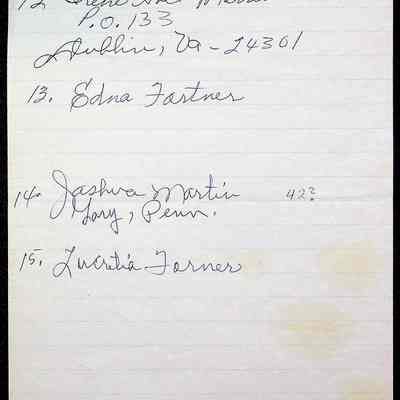 12
P.O. 133
Dublin, Va - 24301
13. Edna Fartner
14. Jashua Martin 42?
Gary, Penn.
15. Lucretia Farner